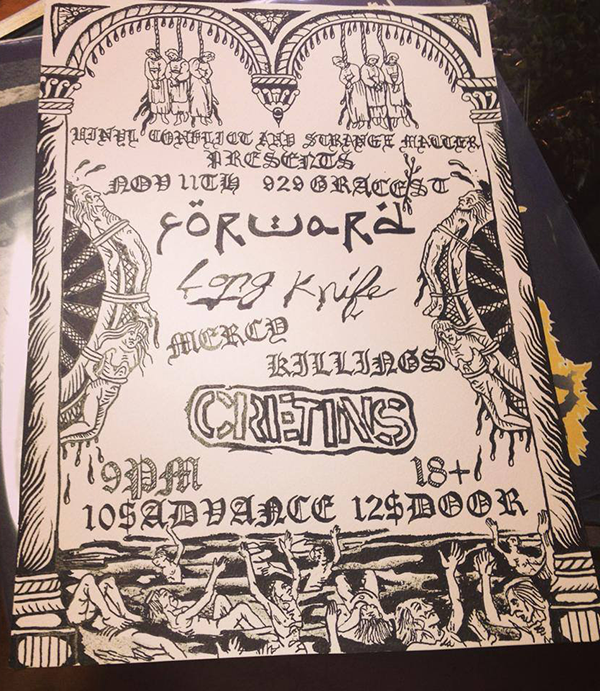 VINYL CONFLICT AND STRANGE MATTER
PRESENTS
NOV 11TH 929 GRACE ST
FÖRWARD
Long Knife
MERCY
KILLINGS
CRETINS
9PM 18+
10$ADVANCE 12$DOOR